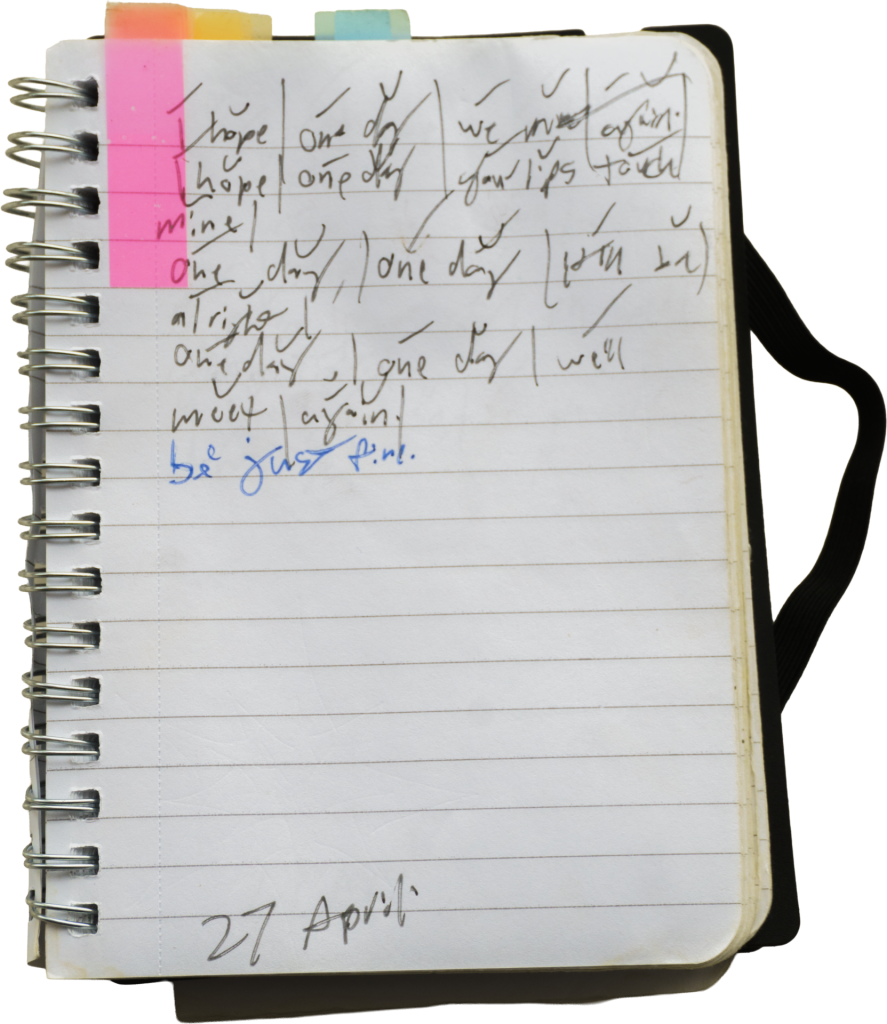 I hope | one day | we meet | again.
I hope | one day | your lips touch
mine |
one day, | one day | it'll be |
alright |
one day, | one day | we'll
meet | again. |
be just fine.
27 April